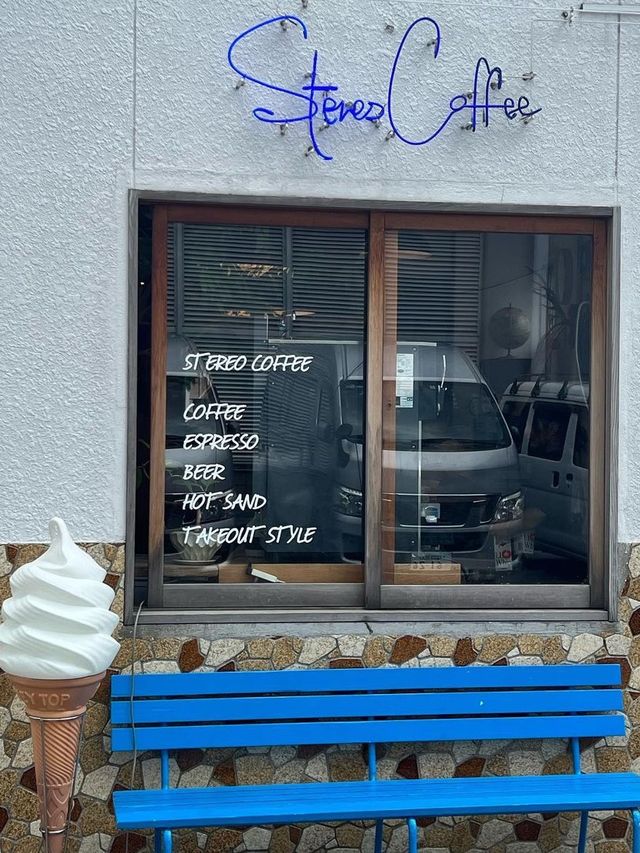 Stereo Coffee
STEREO COFFEE
COFFEE
ESPRESSO
BEER
HOT SAND
TAKEOUT STYLE
TOP